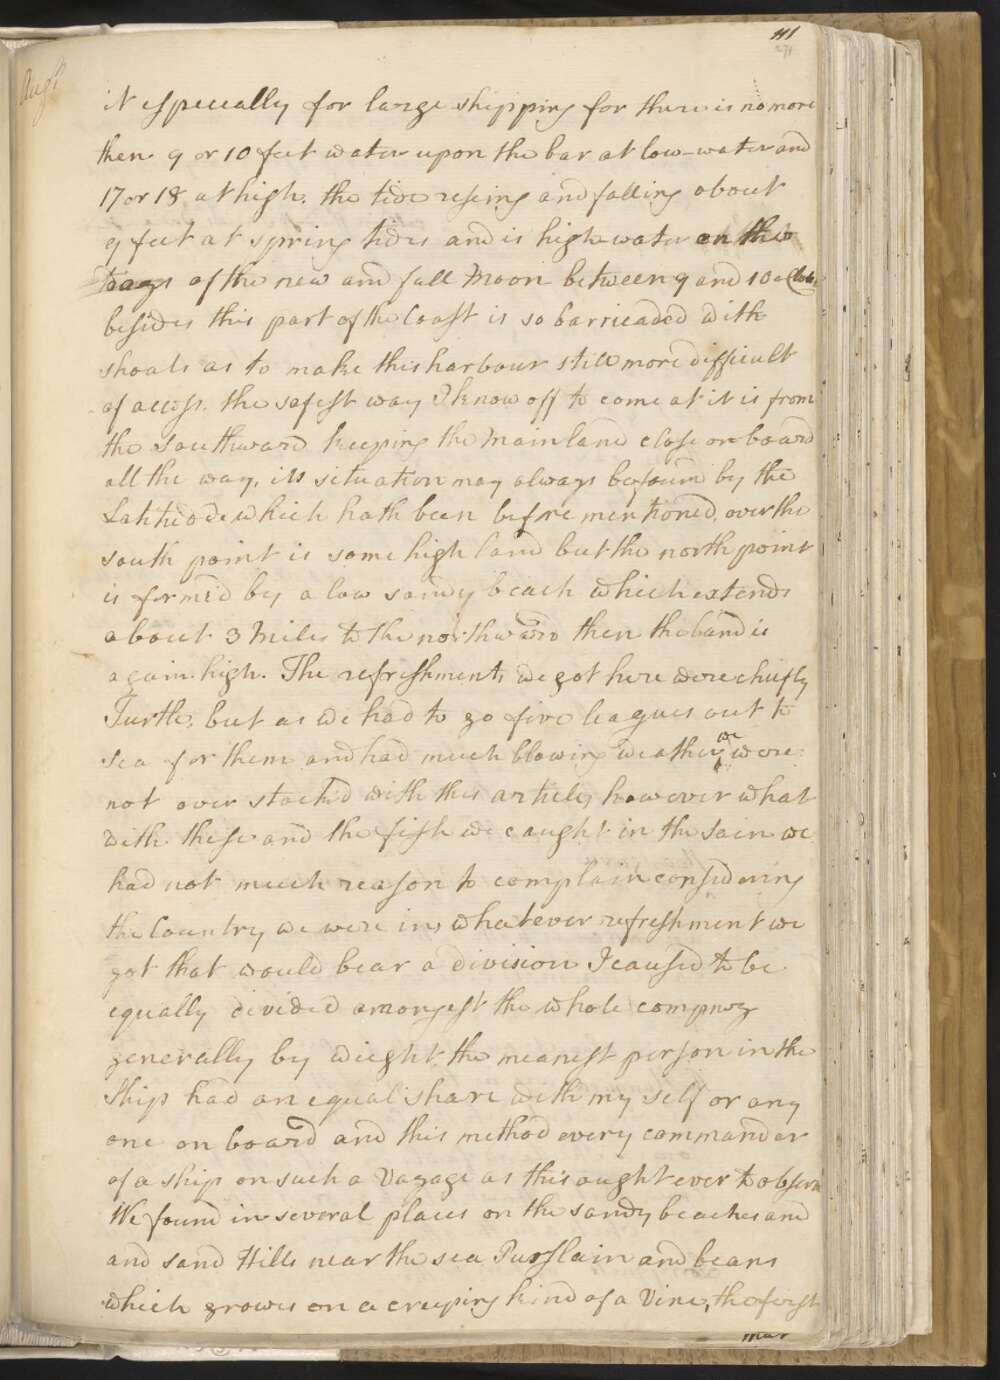 111
271
Augt
it especially for large shipping for there is no more
then 9 or 10 feet water upon the bar at low-water and
17 or 18 at high. the tide reseing and falling about
9 feet at spring tides and is high-water on the
days of the new and full Moon between 9 and 10 oClock
besides this part of the Coast is so barricaded with
shoals as to make this harbour still more difficult
of access. the safest way I know off to come at it is from
the Southward keeping the Main land close on board
all the way. its situation may always be found by the
Latitude which hath been before mentioned, over the
south point is some high land but the north point
is form'd by a low sandy beach which extends
about 3 Miles to the northward then the land is
again high. The refreshments we got here were chiefly
Turtle, but as we had to go five leagues out to
sea for them and had much blowing weather we were
not over stock'd with this article, however what
with these and the fish we caught in the Sain we
had not much reason to complain considering
the Country we were in, whatever refreshment we
got that would bear a division I caused to be
equally divided amongest the whole compney
generally by wieght, the meanest person in the
Ship had an equal share with my self or any
one on board and this method every commander
of a ship on such a Voyage as this ought ever to observe
We found in several places on the sandy beaches and
and sand Hills near the sea Purslain and beans
which growes on a creeping kind of a Vine, the first